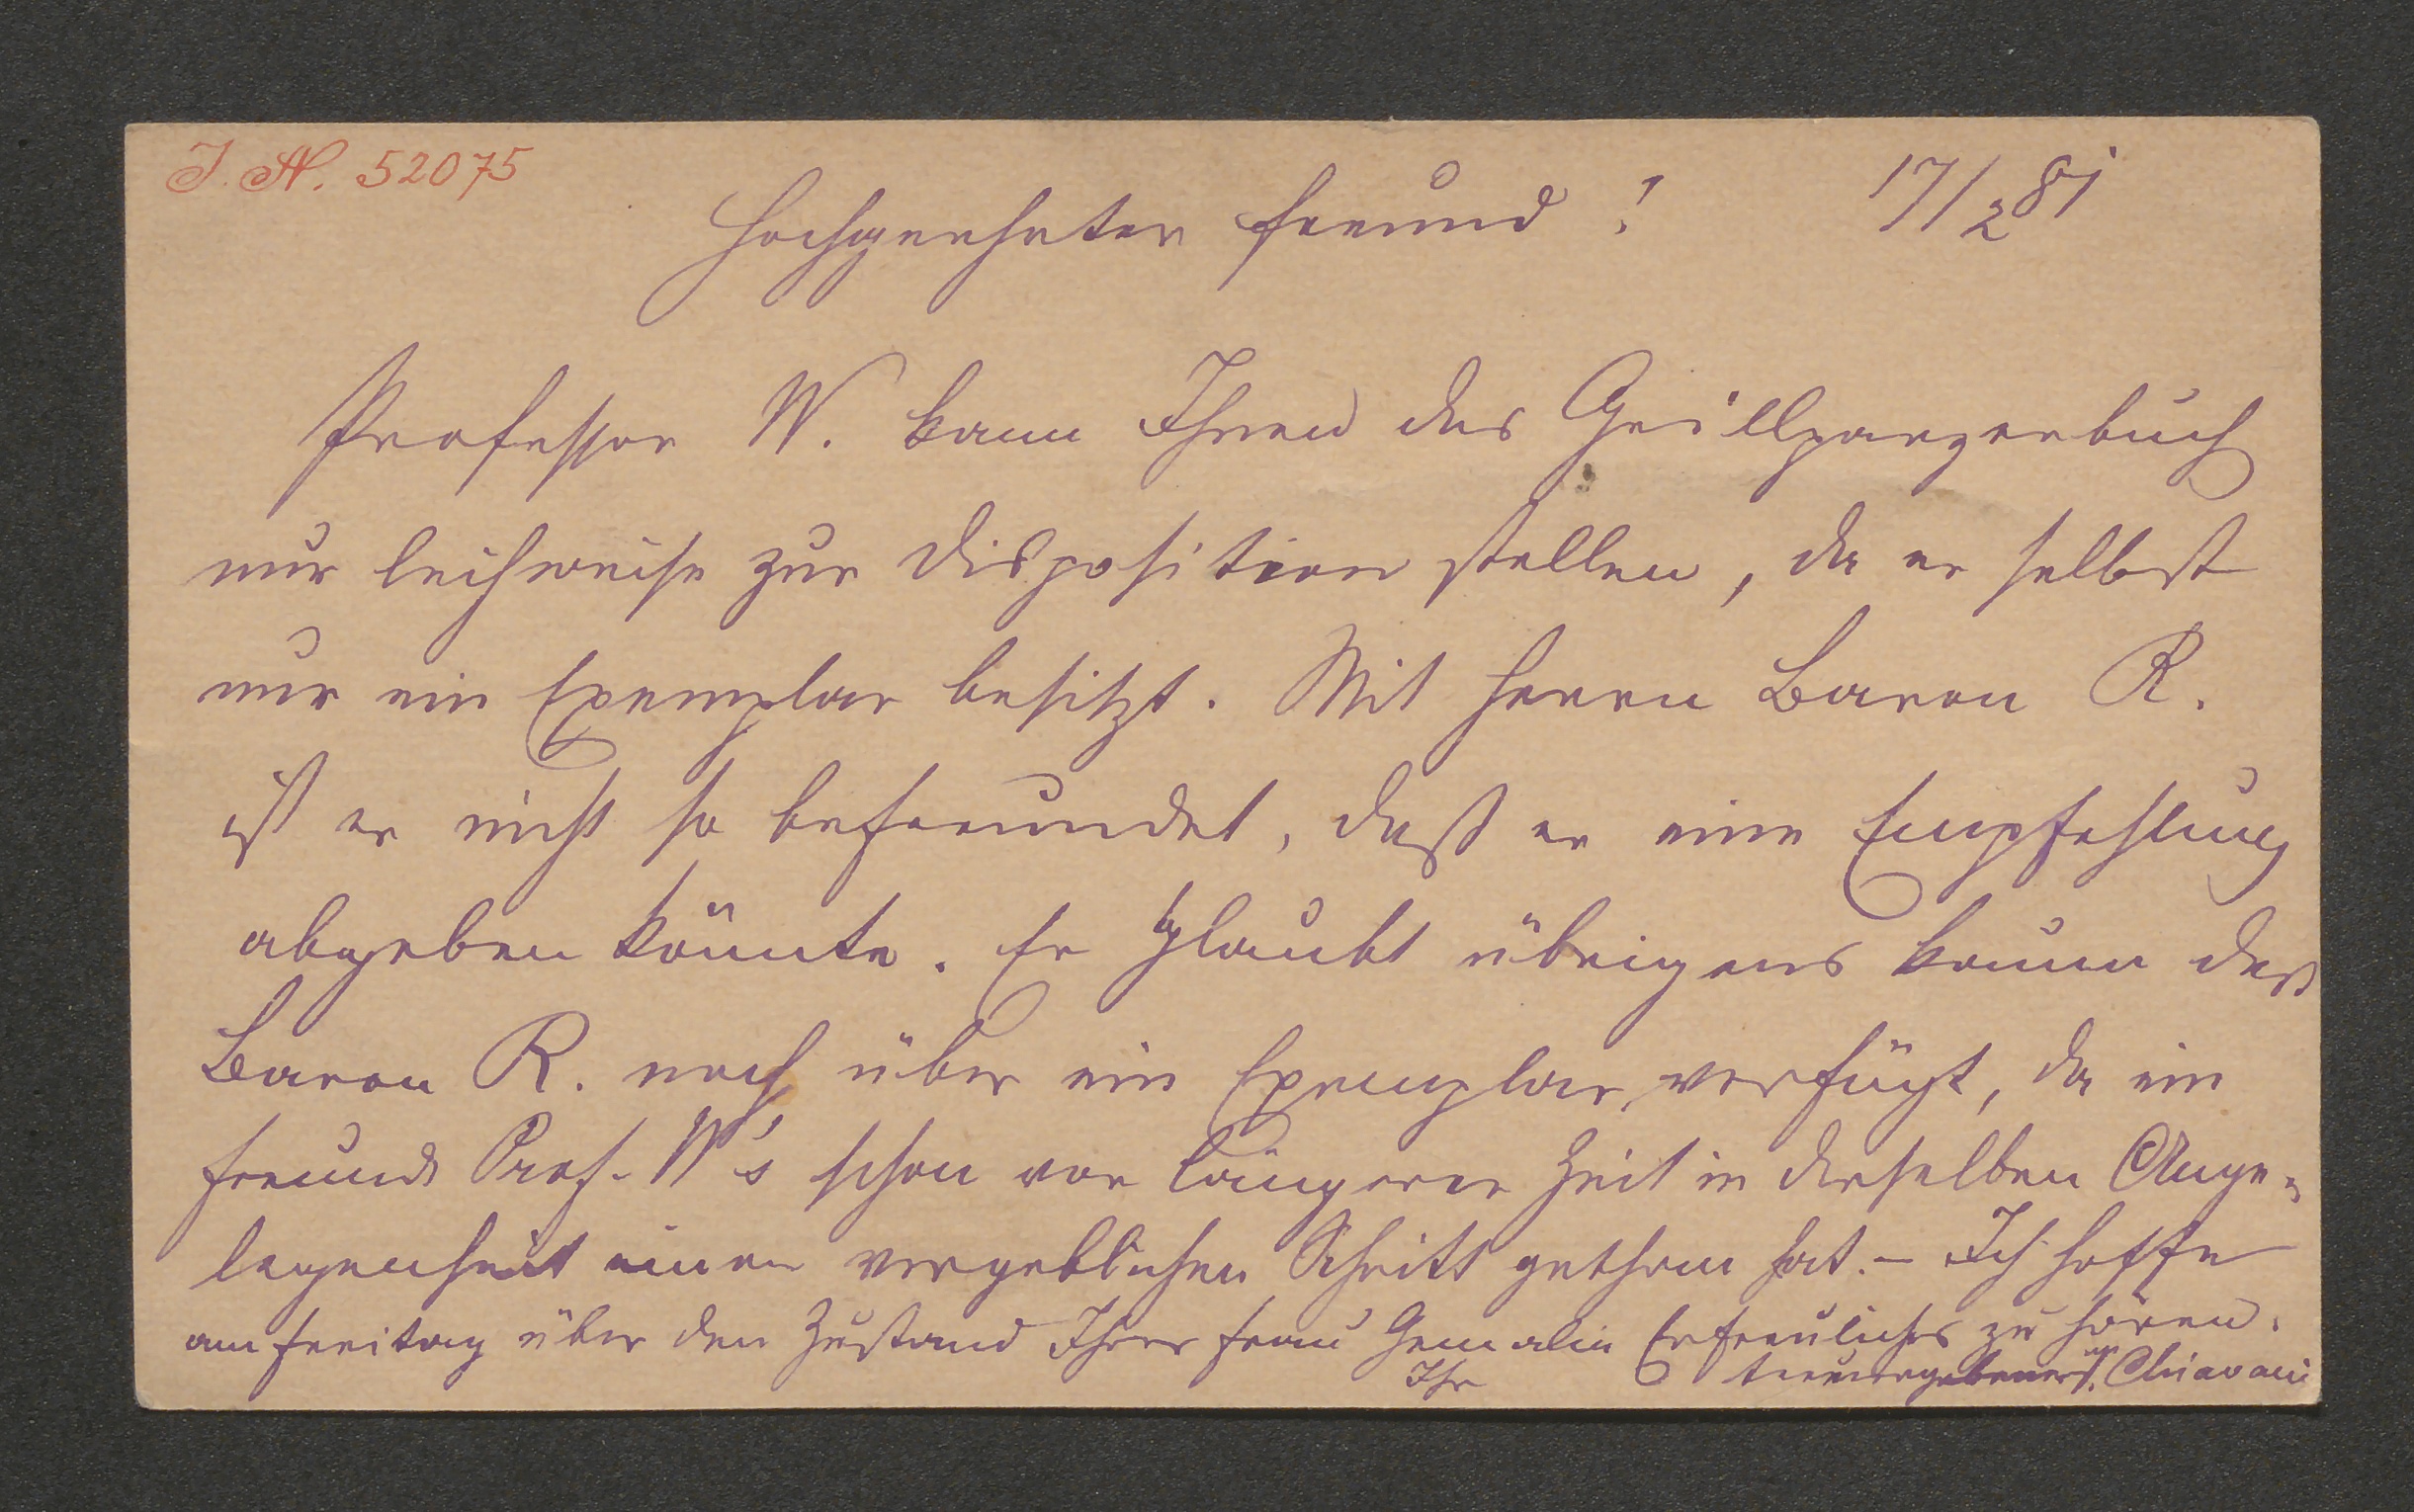 J. N. 52075
17/2 81
Hochgeehrter Freund!
Professor W. kann Ihnen das Grillparzerbuch
nur leihweise zur Disposition stellen, da er selbst
nur ein Exemplar besitzt. Mit Herrn Baron R.
ist er nicht so befreundet, daß er eine Empfehlung
abgeben könnte. Er glaubt übrigens kaum daß
Baron R. noch über ein Exemplar verfügt, da ein
Freund Prof. W's schon vor längerer Zeit in derselben Ange-
legenheit einen vergeblichen Schritt gethan hat. – Ich hoffe
am Freitag über den Zustand Ihrer Frau Gemalin Erfreuliches zu hören.
Ihr treuergebener Chiavaci